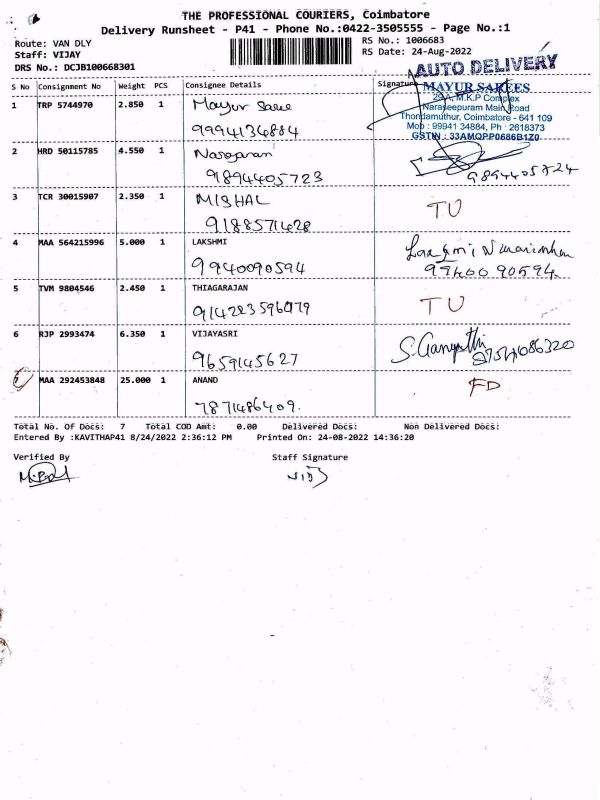 THE PROFESSIONAL COURIERS, Coimbatore
Delivery Runsheet - P41 - Phone No.:0422-3505555 - Page No.:1
Route: VAN DLY
RS No.: 1006683
Staff: VIJAY
RS Date: 24-Aug-2022
DRS No.: DCJB100668301
AUTO DELIVERY
S No Consignment No Weight PCS Consignee Details Signature
MAYUR SAREES
29-A, M.K.P Complex
Naraseepuram Main Road
Thondamuthur, Coimbatore - 641 109
Mob : 99941 34884, Ph : 2618373
GSTIN : 33AMQPP0686B1Z0
1 TRP 5744970 2.850 1 Mayur Saree
9994134884
2 HRD 50115785 4.550 1
9894405723 9894405724
3 TCR 30015907 2.350 1 MISHAL TU
9188571428
4 MAA 564215996 5.000 1 LAKSHMI
9940090594 9940090594
5 TVM 9804546 2.450 1 THIAGARAJAN TU
914283596079
6 RJP 2993474 6.350 1 VIJAYASRI
9659145627
7 MAA 292453848 25.000 1 ANAND FD
7871486409.
Total No. Of Docs: 7 Total COD Amt: 0.00 Delivered Docs: Non Delivered Docs:
Entered By :KAVITHAP41 8/24/2022 2:36:12 PM Printed On: 24-08-2022 14:36:20
Verified By Staff Signature